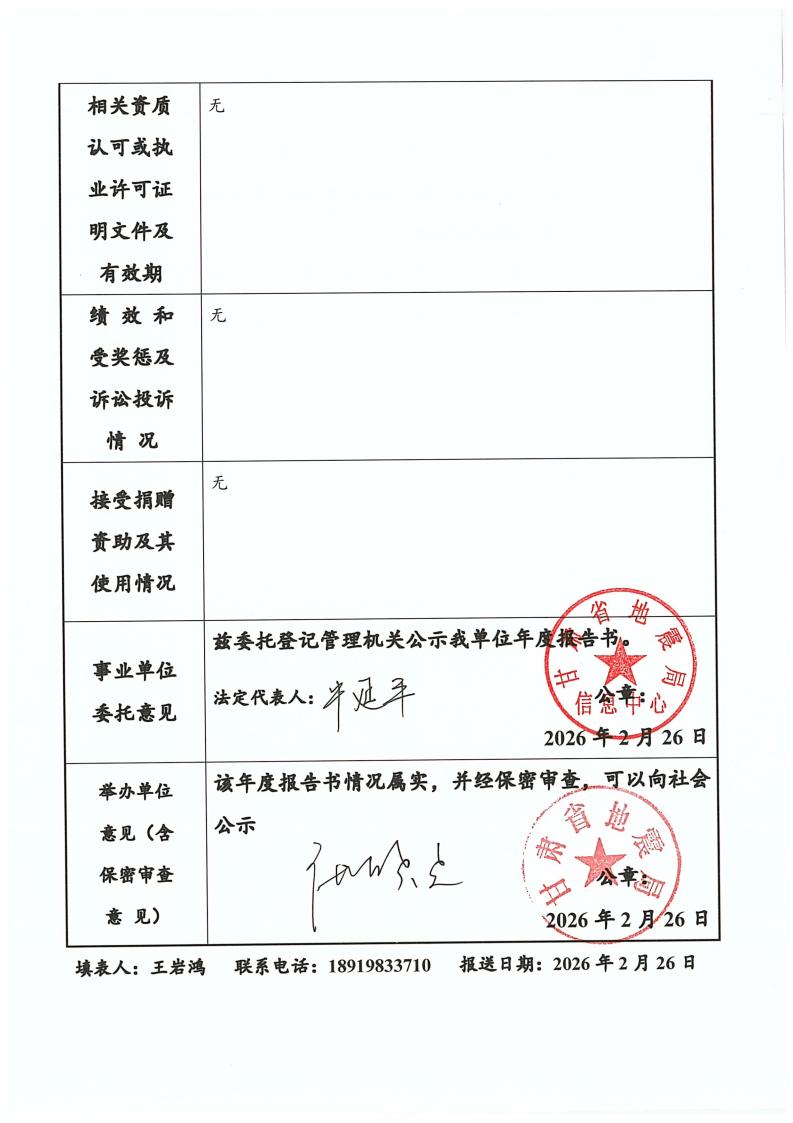 相关资质
认可或执
业许可证
明文件及
有效期
无
绩 效 和
受奖惩及
诉讼投诉
情 况
无
接受捐赠
资助及其
使用情况
无
事业单位
委托意见
兹委托登记管理机关公示我单位年度报告书。
法定代表人：牛延平
公章：
甘肃省地震局
信息中心
2026 年 2 月 26 日
举办单位
意见（含
保密审查
意 见）
该年度报告书情况属实，并经保密审查，可以向社会
公示
公章：
甘肃省地震局
2026 年 2 月 26 日
填表人：王岩鸿 联系电话：18919833710 报送日期：2026 年 2 月 26 日